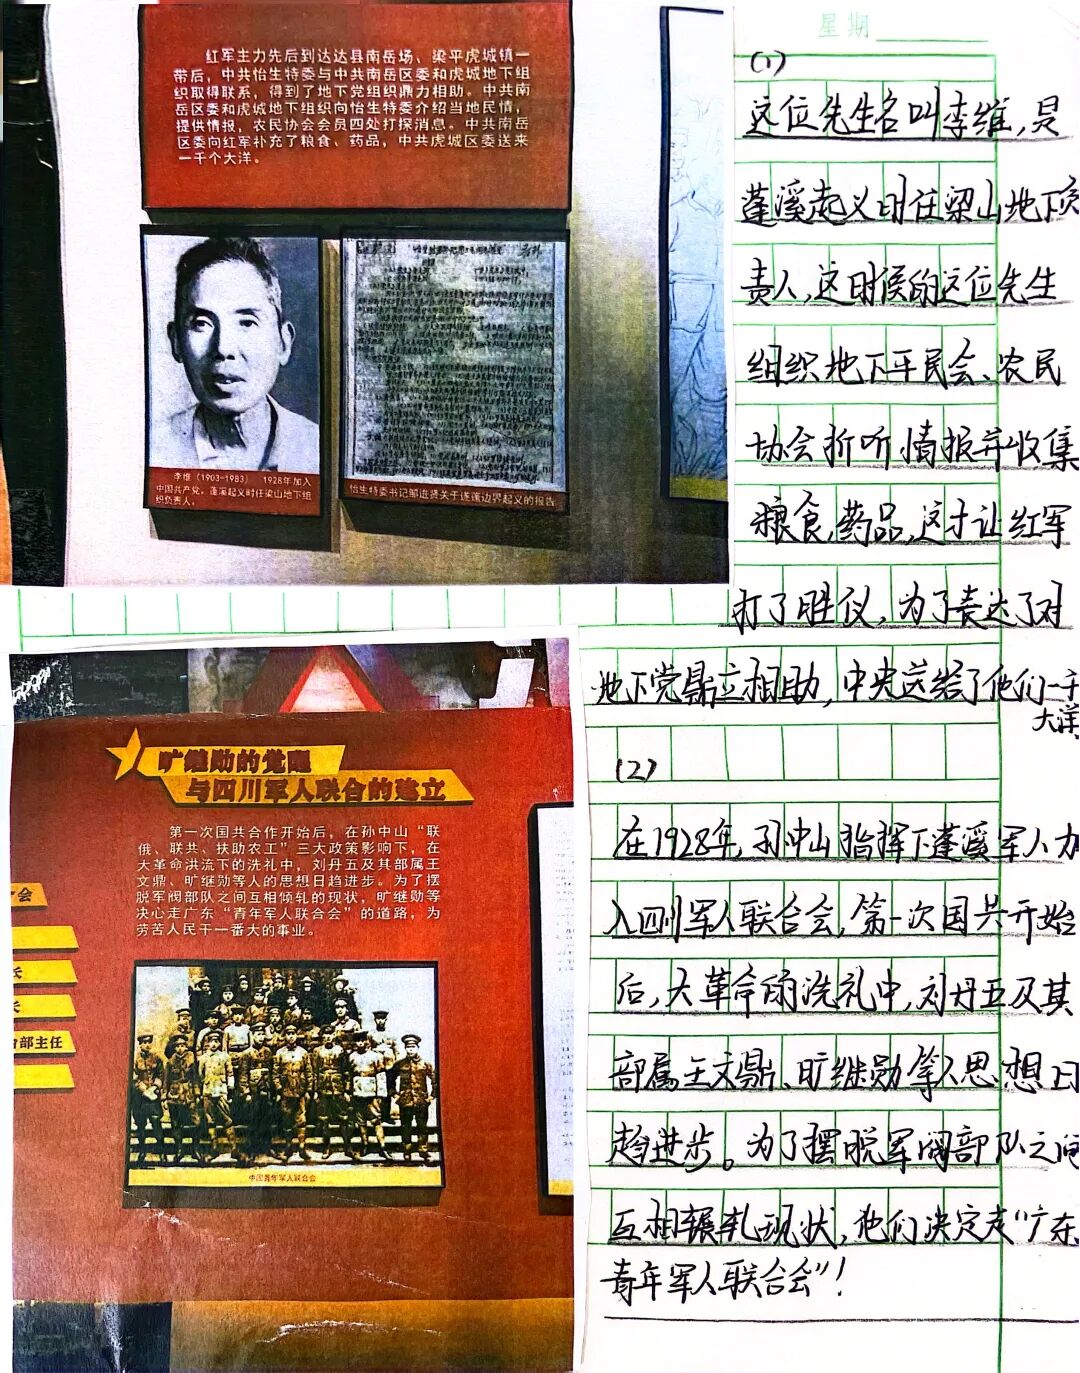 红军主力先后到达达县南岳场、梁平虎城镇一
带后，中共怡生特委与中共南岳区委和虎城地下组
织取得联系，得到了地下党组织鼎力相助。中共南
岳区委和虎城地下组织向怡生特委介绍当地民情，
提供情报，农民协会会员四处打探消息。中共南岳
区委向红军补充了粮食、药品，中共虎城区委送来
一千个大洋。
李维（1903-1983） 1928年加入
中国共产党。蓬溪起义时任梁山地下组
织负责人。
怡生特委书记邹进贤关于遂蓬边界起义的报告
旷继勋的觉醒
与四川军人联合的建立
第一次国共合作开始后，在孙中山“联
俄、联共、扶助农工”三大政策影响下，在
大革命洪流下的洗礼中，刘丹五及其部属王
文鼎、旷继勋等人的思想日趋进步。为了摆
脱军阀部队之间互相倾轧的现状，旷继勋等
决心走广东“青年军人联合会”的道路，为
劳苦人民干一番大的事业。
会
长
长
部主任
中国青年军人联合会
星期
(1)
这位先生名叫李维，是
蓬溪起义时任梁山地下负
责人，这时候的这位先生
组织地下平民会、农民
协会折听情报并收集
粮食，药品，这才让红军
打了胜仪，为了表达了对
地下党鼎立相助，中央送给了他们一千
大洋
(2)
在1928年，孙中山指挥下蓬溪军人加
入四川军人联合会，第一次国共开始
后，大革命的洗礼中，刘丹五及其
部属王文鼎、旷继勋等人思想日
趋进步。为了摆脱军阀部队之间
互相辗轧现状，他们决定走“广东
青年军人联合会”！